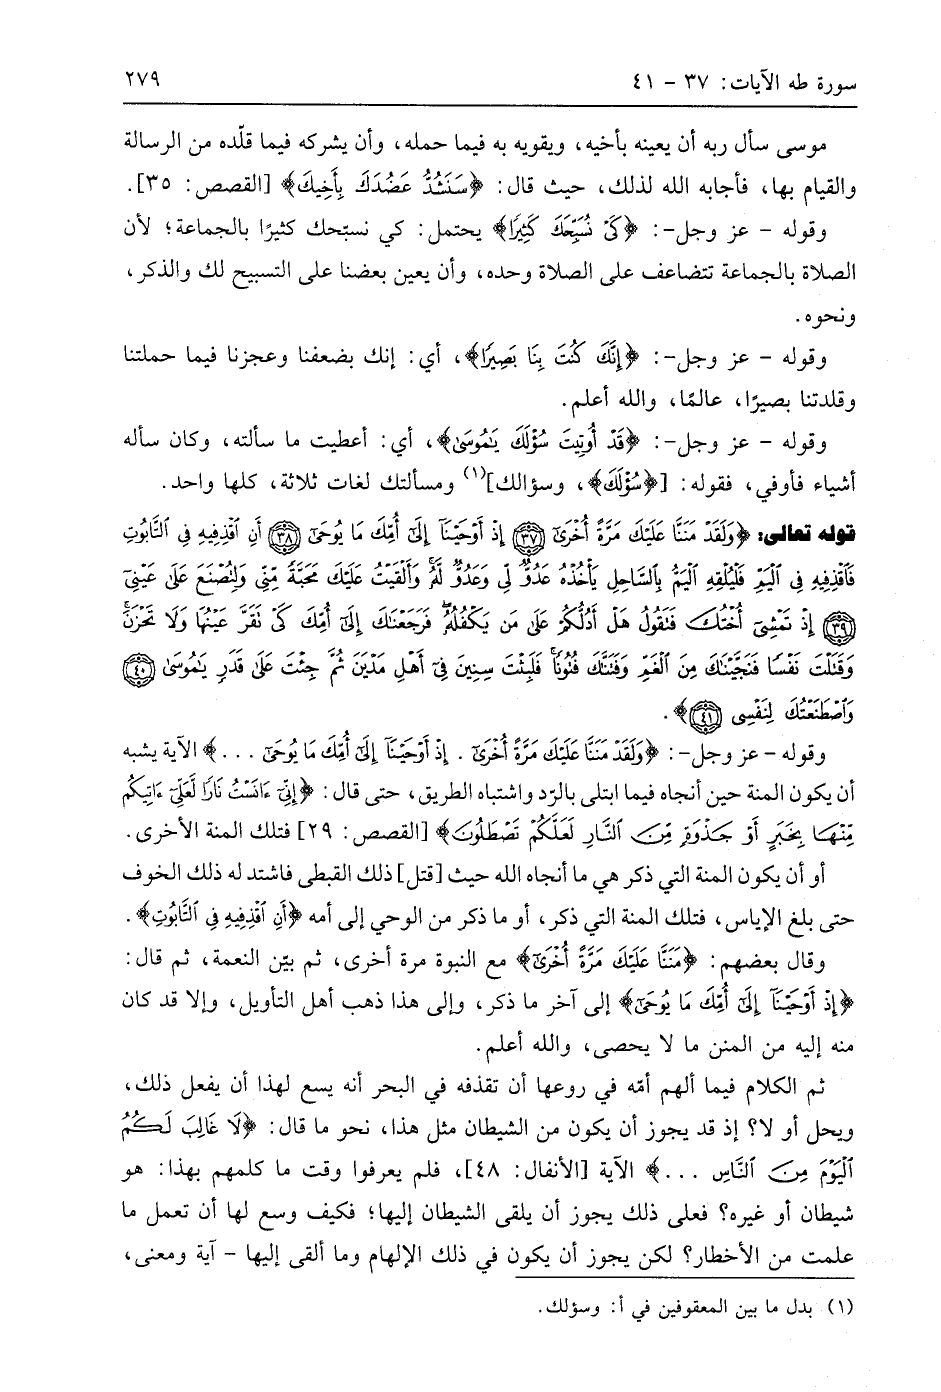 سورة طه الآيات: ٣٧ - ٤١ ٢٧٩
موسى سأل ربه أن يعينه بأخيه، ويقويه به فيما حمله، وأن يشركه فيما قلّده من الرسالة
والقيام بها، فأجابه الله لذلك، حيث قال: ﴿سَنَشُدُّ عَضُدَكَ بِأَخِيكَ﴾ [القصص: ٣٥].
وقوله - عز وجل-: ﴿كَيْ نُسَبِّحَكَ كَثِيرًا﴾ يحتمل: كي نسبّحك كثيرًا بالجماعة؛ لأن
الصلاة بالجماعة تتضاعف على الصلاة وحده، وأن يعين بعضنا على التسبيح لك والذكر،
ونحوه.
وقوله - عز وجل-: ﴿إِنَّكَ كُنتَ بِنَا بَصِيرًا﴾، أي: إنك بضعفنا وعجزنا فيما حملتنا
وقلدتنا بصيرًا، عالمًا، والله أعلم.
وقوله - عز وجل-: ﴿قَدْ أُوتِيتَ سُؤْلَكَ يَٰمُوسَىٰ﴾، أي: أعطيت ما سألته، وكان سأله
أشياء فأوفي، فقوله: [﴿سُؤْلَكَ﴾، وسؤالك](١) ومسألتك لغات ثلاثة، كلها واحد.
قوله تعالى: ﴿وَلَقَدْ مَنَنَّا عَلَيْكَ مَرَّةً أُخْرَىٰٓ ٣٧ إِذْ أَوْحَيْنَآ إِلَىٰٓ أُمِّكَ مَا يُوحَىٰٓ ٣٨ أَنِ ٱقْذِفِيهِ فِى ٱلتَّابُوتِ
فَٱقْذِفِيهِ فِى ٱلْيَمِّ فَلْيُلْقِهِ ٱلْيَمُّ بِٱلسَّاحِلِ يَأْخُذْهُ عَدُوٌّ لِّى وَعَدُوٌّ لَّهُۥ وَأَلْقَيْتُ عَلَيْكَ مَحَبَّةً مِّنِّى وَلِتُصْنَعَ عَلَىٰ عَيْنِىٓ
٣٩ إِذْ تَمْشِىٓ أُخْتُكَ فَتَقُولُ هَلْ أَدُلُّكُمْ عَلَىٰ مَن يَكْفُلُهُۥ فَرَجَعْنَٰكَ إِلَىٰٓ أُمِّكَ كَىْ تَقَرَّ عَيْنُهَا وَلَا تَحْزَنَ
وَقَتَلْتَ نَفْسًا فَنَجَّيْنَٰكَ مِنَ ٱلْغَمِّ وَفَتَنَّٰكَ فُتُونًا فَلَبِثْتَ سِنِينَ فِىٓ أَهْلِ مَدْيَنَ ثُمَّ جِئْتَ عَلَىٰ قَدَرٍ يَٰمُوسَىٰ ٤٠
وَٱصْطَنَعْتُكَ لِنَفْسِى ٤١﴾.
وقوله - عز وجل-: ﴿وَلَقَدْ مَنَنَّا عَلَيْكَ مَرَّةً أُخْرَىٰٓ . إِذْ أَوْحَيْنَآ إِلَىٰٓ أُمِّكَ مَا يُوحَىٰٓ . . .﴾ الآية يشبه
أن يكون المنة حين أنجاه فيما ابتلى بالرّد واشتباه الطريق، حتى قال: ﴿إِنِّىٓ ءَانَسْتُ نَارًا لَّعَلِّىٓ ءَاتِيكُم
مِّنْهَا بِخَبَرٍ أَوْ جَذْوَةٍ مِّنَ ٱلنَّارِ لَعَلَّكُمْ تَصْطَلُونَ﴾ [القصص: ٢٩] فتلك المنة الأخرى.
أو أن يكون المنة التي ذكر هي ما أنجاه الله حيث [قتل] ذلك القبطى فاشتد له ذلك الخوف
حتى بلغ الإياس، فتلك المنة التي ذكر، أو ما ذكر من الوحي إلى أمه ﴿أَنِ ٱقْذِفِيهِ فِى ٱلتَّابُوتِ﴾.
وقال بعضهم: ﴿مَنَنَّا عَلَيْكَ مَرَّةً أُخْرَىٰٓ﴾ مع النبوة مرة أخرى، ثم بيّن النعمة، ثم قال:
﴿إِذْ أَوْحَيْنَآ إِلَىٰٓ أُمِّكَ مَا يُوحَىٰٓ﴾ إلى آخر ما ذكر، وإلى هذا ذهب أهل التأويل، وإلا قد كان
منه إليه من المنن ما لا يحصى، والله أعلم.
ثم الكلام فيما ألهم أمّه في روعها أن تقذفه في البحر أنه يسع لهذا أن يفعل ذلك،
ويحل أو لا؟ إذ قد يجوز أن يكون من الشيطان مثل هذا، نحو ما قال: ﴿لَا غَالِبَ لَكُمُ
ٱلْيَوْمَ مِنَ ٱلنَّاسِ . . .﴾ الآية [الأنفال: ٤٨]، فلم يعرفوا وقت ما كلمهم بهذا: هو
شيطان أو غيره؟ فعلى ذلك يجوز أن يلقى الشيطان إليها؛ فكيف وسع لها أن تعمل ما
علمت من الأخطار؟ لكن يجوز أن يكون في ذلك الإلهام وما ألقى إليها - آية ومعنى،
(١) بدل ما بين المعقوفين في أ: وسؤلك.